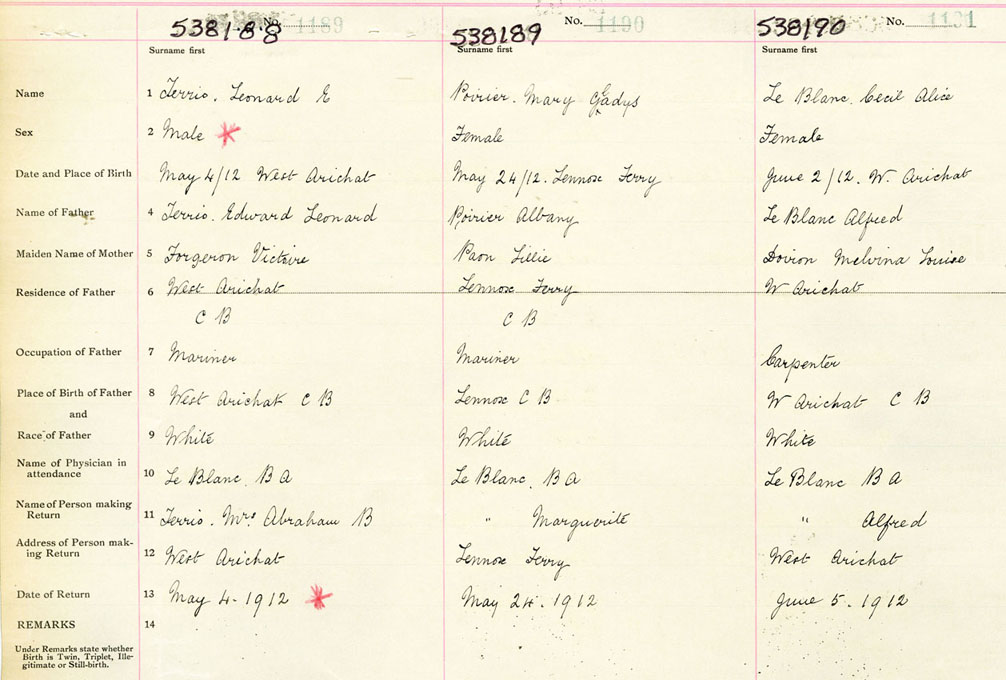 538188 No. 1189 538189 No. 1190 538190 No. 1191
Surname first Surname first Surname first
Name 1 Terrio. Leonard E Poirier. Mary Gladys Le Blanc. Cecil Alice
Sex 2 Male * Female Female
Date and Place of Birth May 4/12 West Arichat May 24/12. Lennox Ferry June 2/12. W. Arichat
Name of Father 4 Terrio. Edward Leonard Poirier Albany Le Blanc Alfred
Maiden Name of Mother 5 Forgeron Victoire Paon Lillie Doiron Melvina Louise
Residence of Father 6 West Arichat Lennox Ferry W Arichat
C B C B
Occupation of Father 7 Mariner Mariner Carpenter
Place of Birth of Father 8 West Arichat C B Lennox C B W Arichat C B
and
Race of Father 9 White White White
Name of Physician in
attendance 10 Le Blanc. B A Le Blanc. B A Le Blanc B A
Name of Person making
Return 11 Terrio. Mrs Abraham B " Marguerite " Alfred
Address of Person mak-
ing Return 12 West Arichat Lennox Ferry West Arichat
Date of Return 13 May 4-1912 * May 24. 1912 June 5. 1912
REMARKS 14
Under Remarks state whether
Birth is Twin, Triplet, Ille-
gitimate or Still-birth.